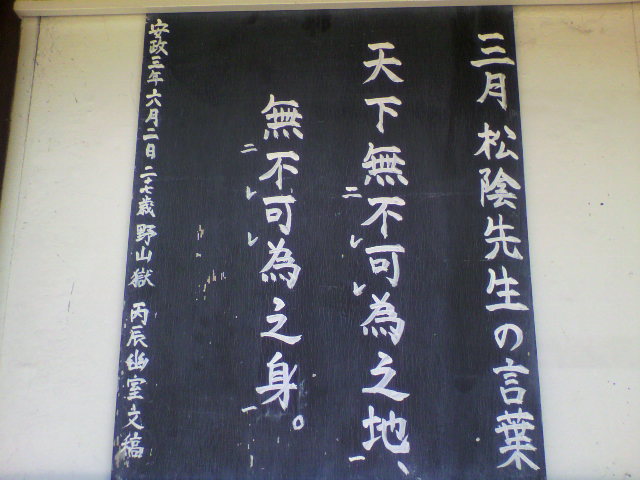 三月松陰先生の言葉
天下無二不レ可レ為之地一、
無二不レ可レ為之身一。
安政三年六月二日二十七歳野山獄 丙辰幽室文稿